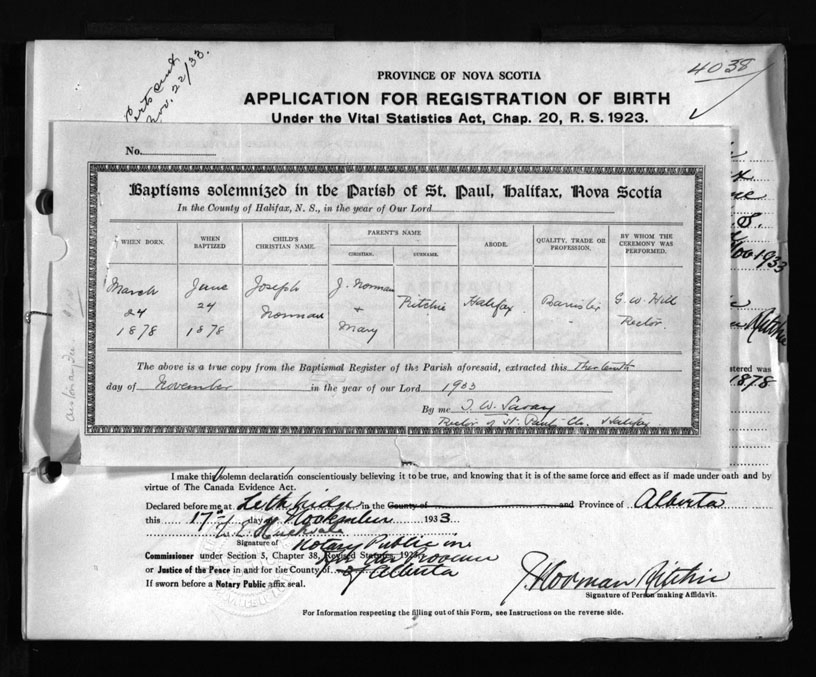 Nov. 22/33.
4038
PROVINCE OF NOVA SCOTIA
APPLICATION FOR REGISTRATION OF BIRTH
Under the Vital Statistics Act, Chap. 20, R. S. 1923.
No.
Baptisms solemnized in the Parish of St. Paul, Halifax, Nova Scotia
In the County of Halifax, N. S., in the year of Our Lord
WHEN BORN. WHEN BAPTIZED CHILD'S CHRISTIAN NAME. PARENT'S NAME CHRISTIAN. SURNAME. ABODE. QUALITY, TRADE OR PROFESSION. BY WHOM THE CEREMONY WAS PERFORMED.
March June Joseph J. Norman Ritchie Halifax Barrister G. W. Hill
24 24 Norman + Rector.
1878 1878 Mary
The above is a true copy from the Baptismal Register of the Parish aforesaid, extracted this thirteenth
day of November in the year of our Lord 1933
By me
Rector of St. Paul's Ch. Halifax
S.
Nov 1933
Ritchie
stered was
1878
I make this solemn declaration conscientiously believing it to be true, and knowing that it is of the same force and effect as if made under oath and by
virtue of The Canada Evidence Act.
Declared before me at Lethbridge in the County of and Province of Alberta
this 17th day of November 1933.
Signature of
Notary Public in
Commissioner under Section 5, Chapter 38, Revised Statutes, 1923
or Justice of the Peace in and for the County of
for the Province
of Alberta
If sworn before a Notary Public affix seal.
J. Norman Ritchie
Signature of Person making Affidavit.
For Information respecting the filling out of this Form, see Instructions on the reverse side.